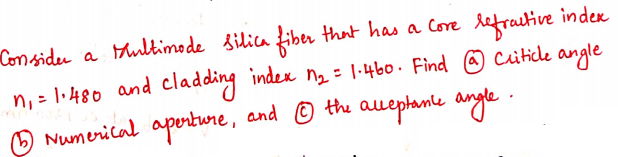 Consider a Multimode silica fiber that has a core refractive index
n₁ = 1.480 and cladding index n₂ = 1.460. Find ⓐ Criticle angle
ⓑ Numerical aperture, and ⓒ the acceptance angle.